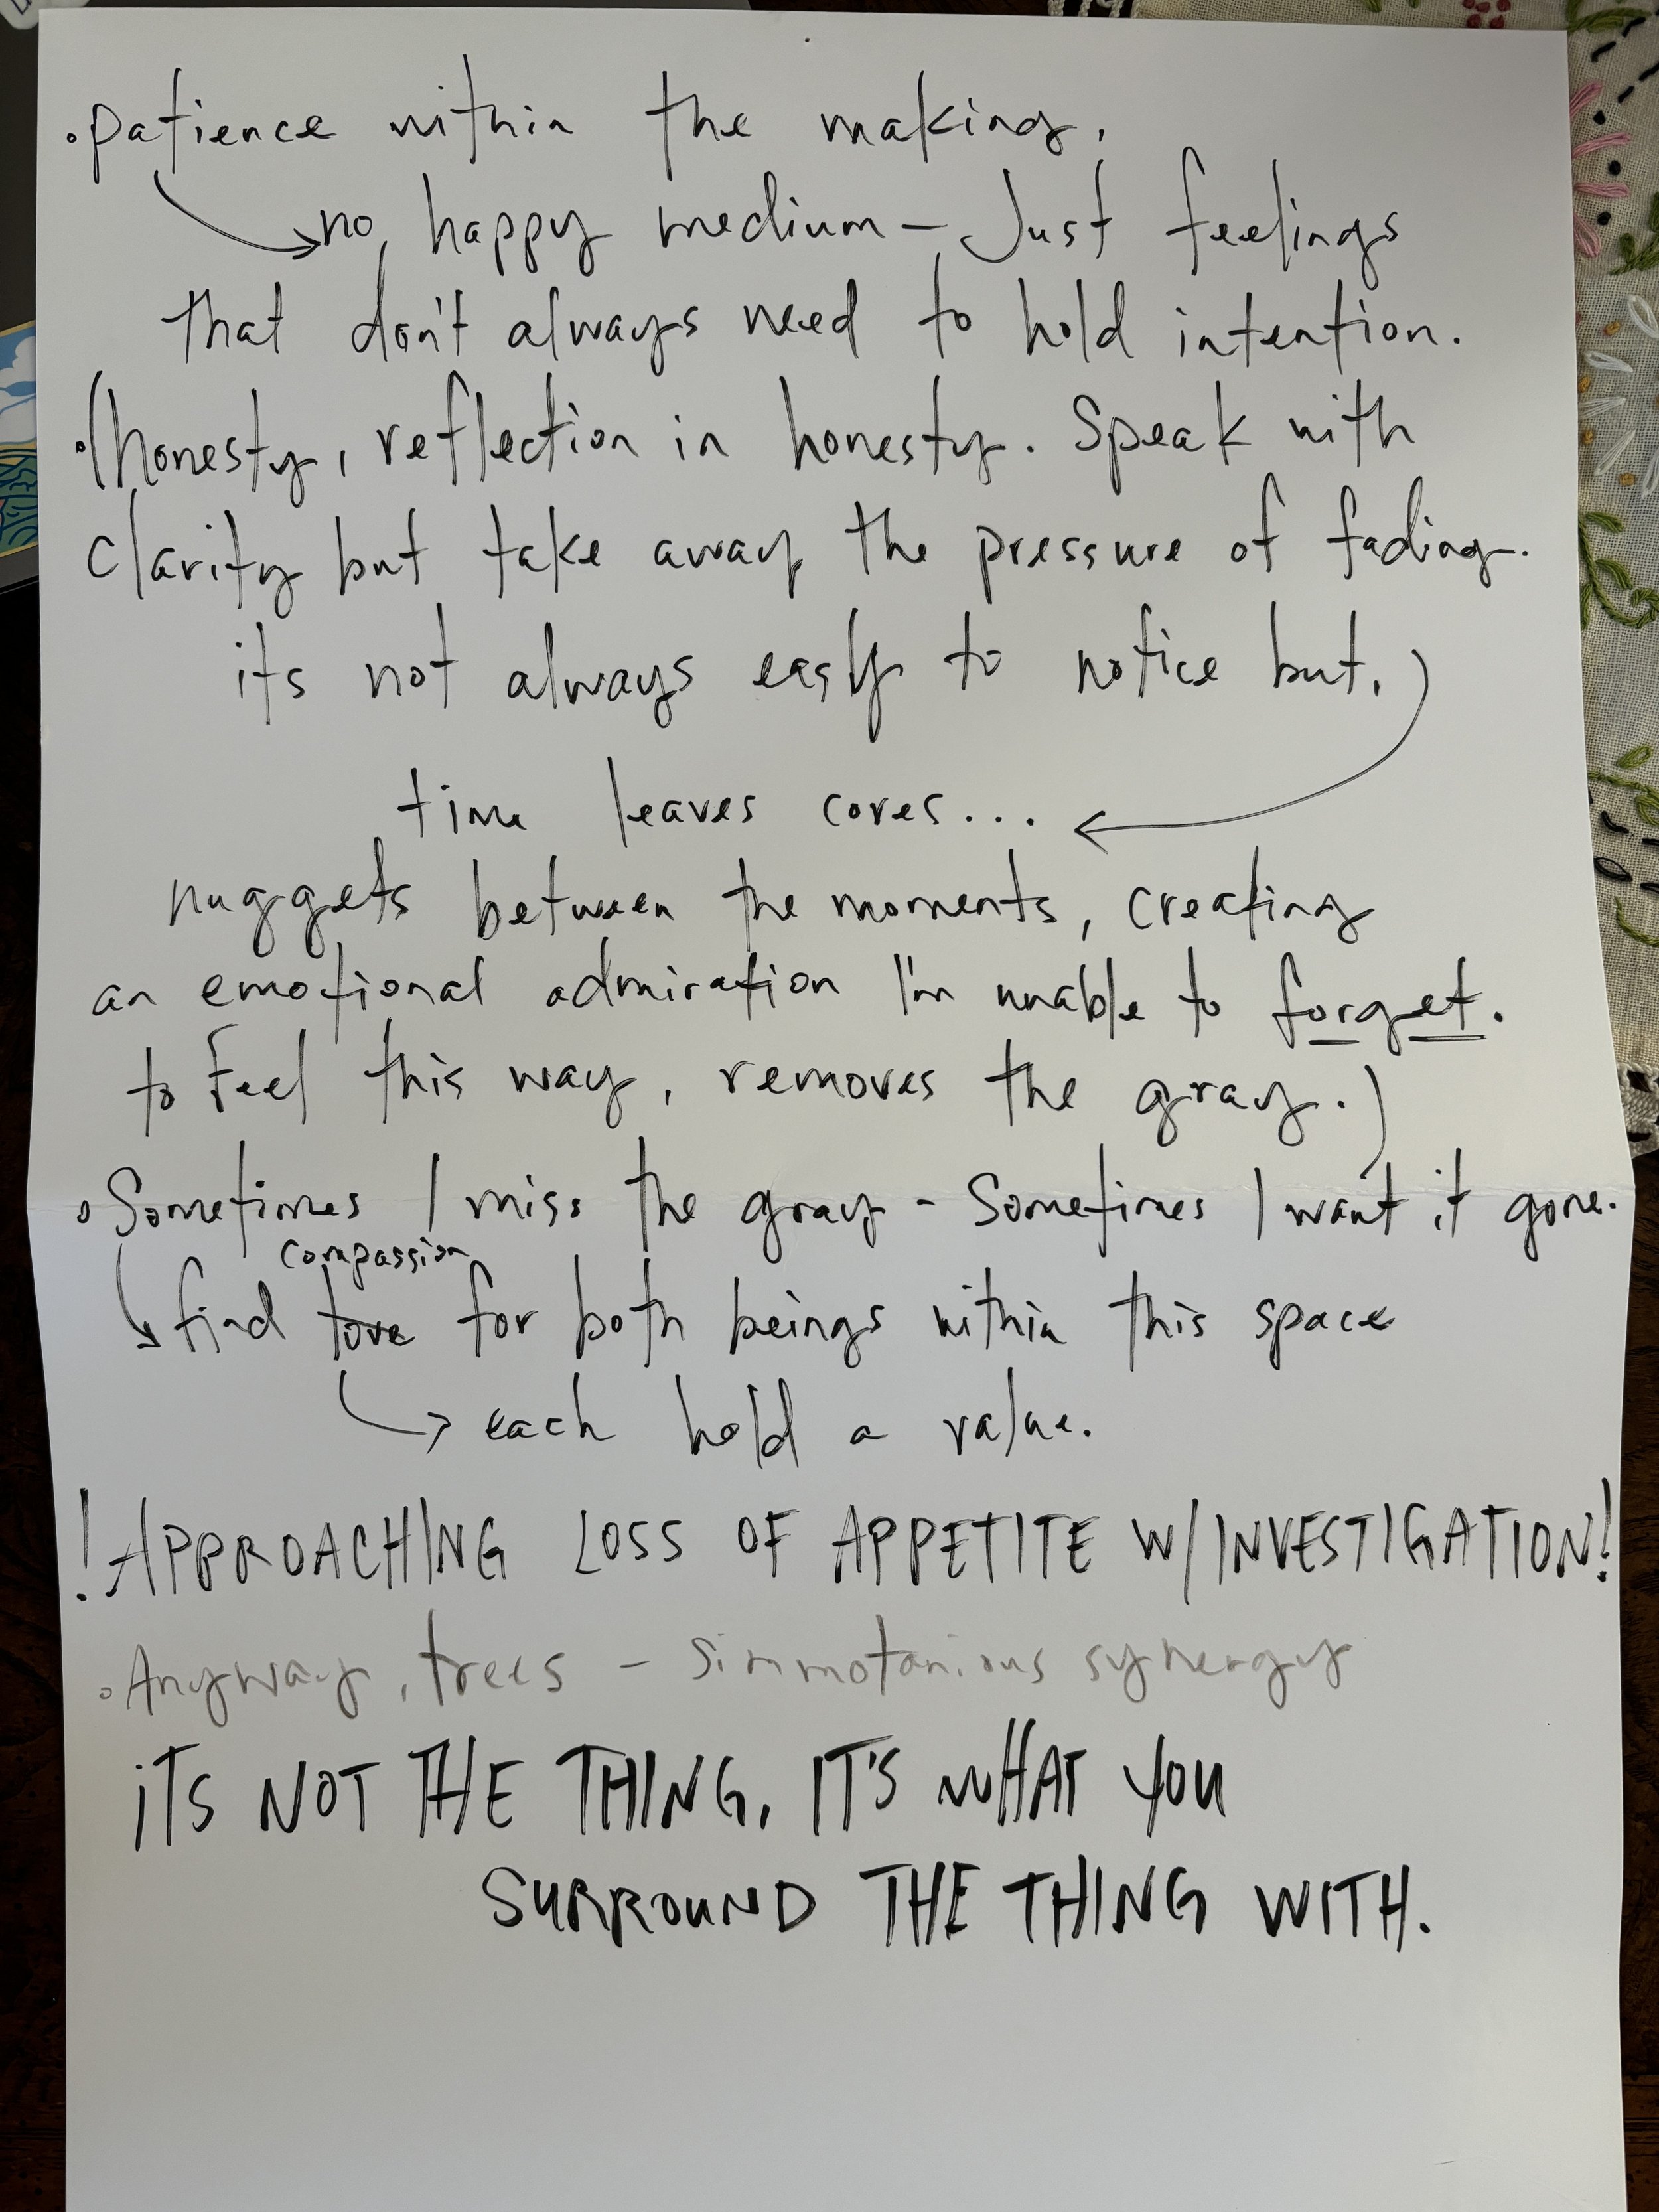 • patience within the making.
→ no happy medium - Just feelings
that don't always need to hold intention.
• (honesty, reflection in honesty. Speak with
clarity but take away the pressure of fading.
its not always easy to notice but,)
time leaves cores... ←
nuggets between the moments, creating
an emotional admiration I'm unable to forget.
to feel this way, removes the gray.)
• Sometimes I miss the gray - Sometimes I want it gone.
compassion
↳ find ~~love~~ for both beings within this space
↳ each hold a value.
! APPROACHING LOSS OF APPETITE W/INVESTIGATION!
• Anyway, trees - Simmotanious synergy
iTS NOT THE THING, IT'S WHAT YOU
SURROUND THE THING WITH.